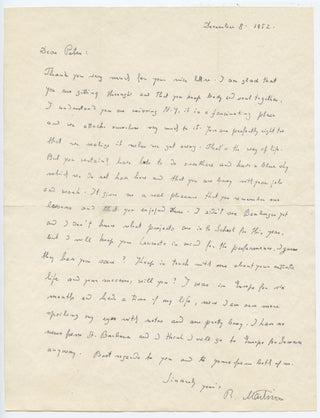 December 8. 1952.
Dear Peter:
Thank you very much for your nice letter. I am glad that
you are getting through and that you keep body and soul together.
I understand you are missing N.Y., it is a fascinating place
and one attaches ourselves very much to it. You are perfectly right to
that we realize it when we get away. That's the way of life.
But you certainly have lots to do elsewhere and have a blue sky
which we do not have here and that you are busy with your jobs
and work. It gives me a real pleasure that you remember our
lessons and that you enjoyed them. I didn't see Boulanger yet
and I don't know what projects are in the School for this year,
but I will keep your Concerto in mind for the performance, I guess
they have your score? Keep in touch with me about your entire
life and your success, will you? I was in Europe for six
months and had a time of my life, now I am once more
spoiling my eyes with notes and am pretty busy. I have no
news from St. Barbara and I think I will go to Europe for Summer
anyway. Best regards to you and to yours from both of us.
Sincerely yours